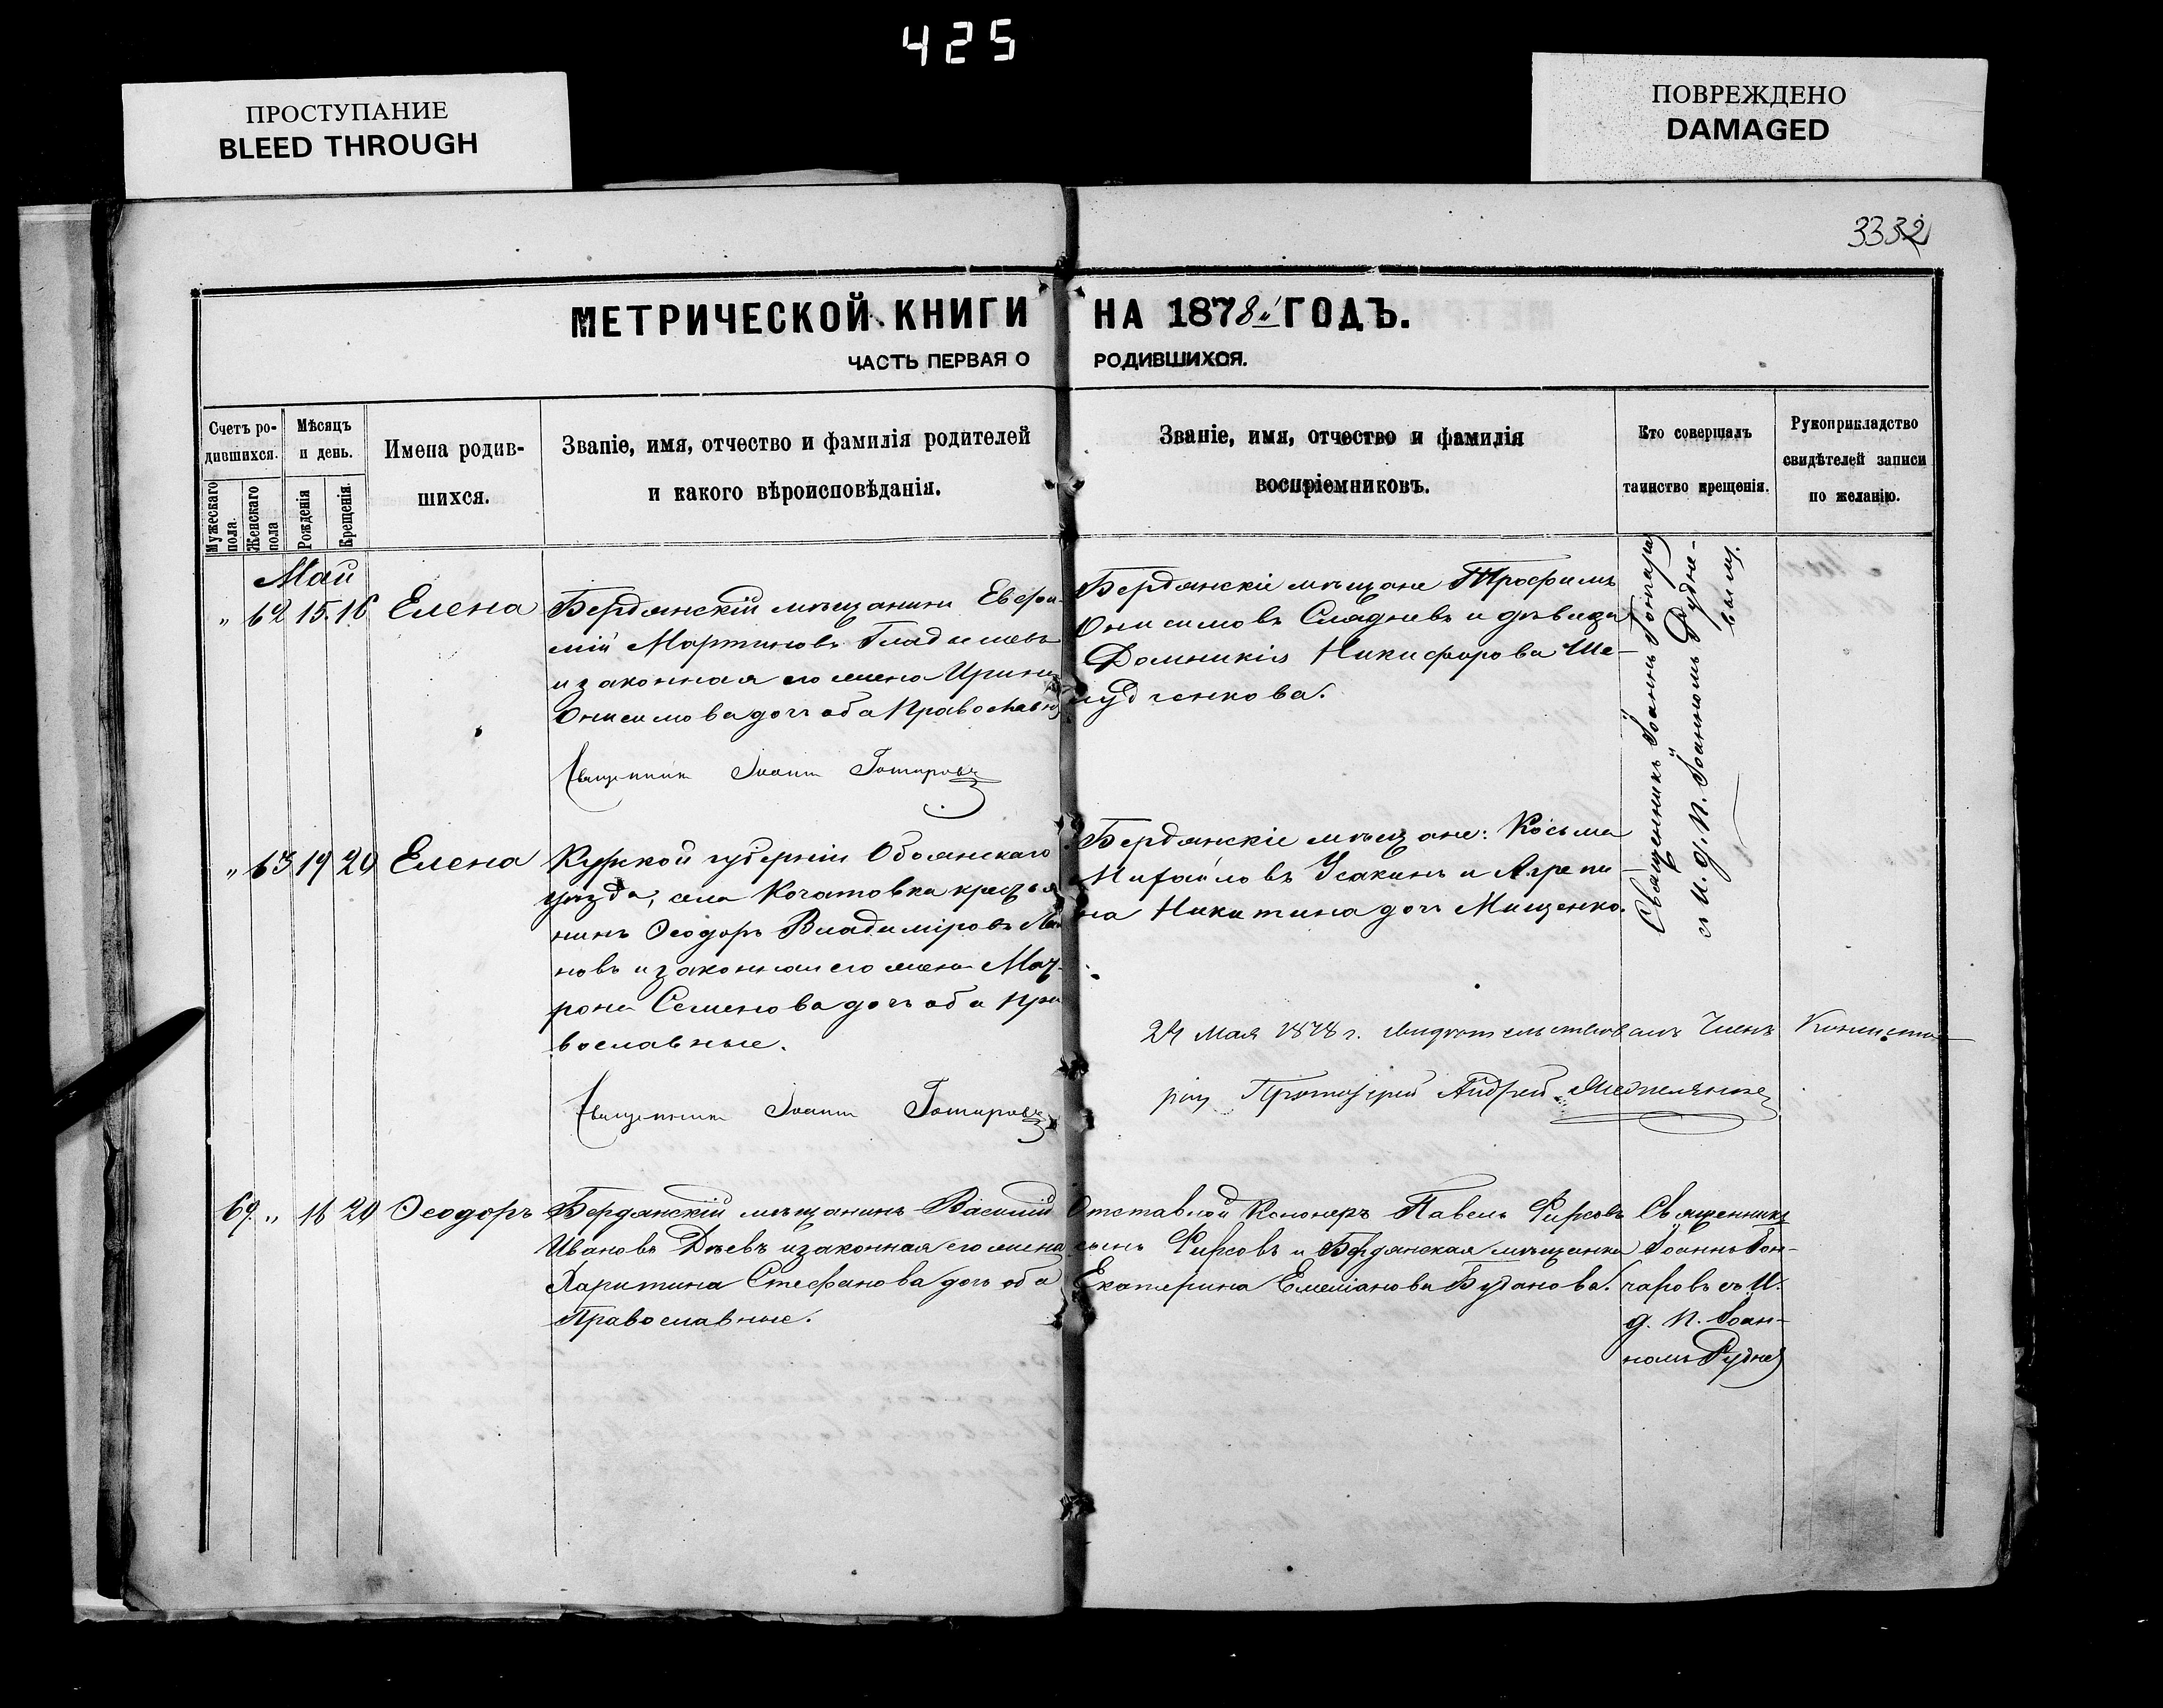 425
ПРОСТУПАНИЕ
BLEED THROUGH
ПОВРЕЖДЕНО
DAMAGED
3332
МЕТРИЧЕСКОЙ КНИГИ НА 1878й ГОДЪ.
ЧАСТЬ ПЕРВАЯ О РОДИВШИХСЯ.
Счетъ ро-
дившихся.
Мужескаго пола.
Женскаго пола
Мѣсяцъ
и день.
Рожденія
Крещенія.
Имена родив-
шихся.
Званіе, имя, отчество и фамилія родителей
и какого вѣроисповѣданія.
Званіе, имя, отчество и фамилія
воспріемниковъ.
Кто совершалъ
таинство крещенія.
Рукоприкладство
свидѣтелей записи
по желанію.
Май
" 62 15. 16 Елена
Бердянскій мѣщанинъ Евфи-
мій Мартиновъ
и законная его жена Ирина
Онисимова дочъ оба Православн
Священникъ Іоаннъ Гончаровъ
Бердянскіе мѣщане Трофимъ
Онисимовъ Сладневъ и дѣвица
Домникія Никифорова Ше-
лудченкова.
Священникъ Іоаннъ Гончаровъ
съ И. д. П. Іоанномъ Рудне-
вымъ.
" 63 19 20 Елена
Курской губерніи Обоянскаго
уѣзда, села Кочатовка крестья
нинъ Ѳеодоръ Владиміровъ
новъ и законная его жена Мат-
рона Семенова дочъ оба Пра
вославные.
Священникъ Іоаннъ Гончаровъ
Бердянскіе мѣщане: Косьма
Михайловъ Усакинъ и Агрепи
на Никитина дочъ Мищенко.
24 Мая 1878 г. свидѣтельствовалъ Членъ Консисто-
ріи Протоіерей Андрей
69. " 16 20 Ѳеодоръ
Бердянскій мѣщанинъ Василій
Ивановъ Дѣевъ и законная его жена
Харитина Стефанова дочъ оба
Православные.
Отставной Канонеръ Павелъ Фирсовъ
сынъ Фирсовъ и Бердянская мѣщанка
Екатерина Емеліанова Буданова.
Священникъ
Іоаннъ Гон-
чаровъ съ И.
д. П. Іоан-
номъ Рудне